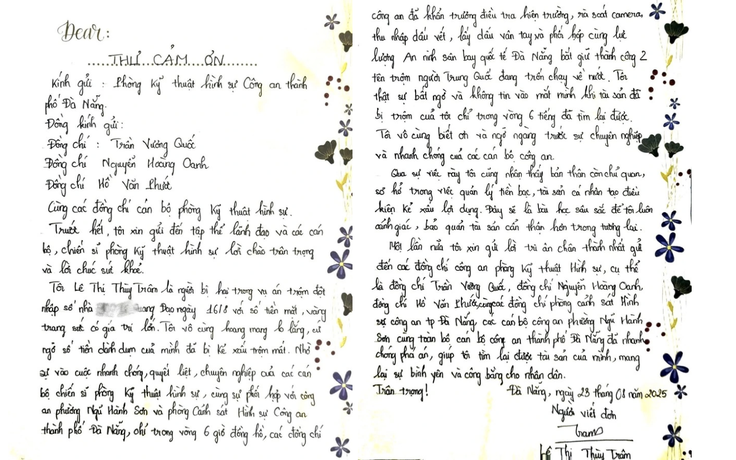 Dear:
THƯ CẢM ƠN
Kính gửi : Phòng Kỹ thuật hình sự Công an thành
phố Đà Nẵng.
Đồng kính gửi:
Đồng chí Trần Vương Quốc
Đồng chí Nguyễn Hoàng Oanh
Đồng chí Hồ Văn Phước
Cùng các đồng chí cán bộ phòng Kỹ thuật hình sự.
Trước hết, tôi xin gửi đến tập thể lãnh đạo và các cán
bộ, chiến sĩ phòng Kỹ thuật hình sự lời chào trân trọng
và lời chúc sức khỏe.
Tôi Lê Thị Thùy Trâm là người bị hại trong vụ án trộm đột
nhập số nhà Đạo ngày 16/8 với số tiền mặt, vàng
trang sức có giá trị lớn. Tôi vô cùng hoang mang lo lắng, cứ
ngỡ số tiền dành dụm của mình đã bị kẻ xấu trộm mất. Nhờ
sự vào cuộc nhanh chóng, quyết liệt, chuyên nghiệp của các cán
bộ chiến sĩ phòng Kỹ thuật hình sự, cùng sự phối hợp với công
an phường Ngũ Hành Sơn và phòng Cảnh sát Hình sự Công an
thành phố Đà Nẵng, chỉ trong vòng 6 giờ đồng hồ, các đồng chí
công an đã khẩn trương điều tra hiện trường, rà soát camera,
thu nhập dấu vết, lấy dấu vân tay và phối hợp cùng lực
lượng An ninh sân bay quốc tế Đà Nẵng bắt giữ thành công 2
tên trộm người Trung Quốc đang trốn chạy về nước. Tôi
thật sự bất ngờ và không tin vào mắt mình khi tài sản đã
bị trộm của tôi chỉ trong vòng 6 tiếng đã tìm lại được.
Tôi vô cùng biết ơn và ngỡ ngàng trước sự chuyên nghiệp
và nhanh chóng của các cán bộ công an.
Qua sự việc này tôi cũng nhận thấy bản thân còn chủ quan,
sơ hở trong việc quản lý tiền bạc, tài sản cá nhân tạo điều
kiện kẻ xấu lợi dụng. Đây sẽ là bài học sâu sắc để tôi luôn
cảnh giác, bảo quản tài sản cẩn thận hơn trong tương lai.
Một lần nữa tôi xin gửi lời tri ân chân thành nhất gửi
đến các đồng chí công an phòng Kỹ thuật Hình sự, cụ thể
là đồng chí Trần Vương Quốc, đồng chí Nguyễn Hoàng Oanh,
đồng chí Hồ Văn Phước, cùng các đồng chí phòng cảnh sát Hình
sự công an tp Đà Nẵng, các cán bộ công an phường Ngũ Hành
Sơn cùng toàn bộ cán bộ công an thành phố Đà Nẵng đã nhanh
chóng phá án, giúp tôi tìm lại được tài sản của mình, mang
lại sự bình yên và công bằng cho nhân dân.
Trân trọng!
Đà Nẵng, ngày 23 tháng 08 năm 2025
Người viết đơn
Tram
Lê Thị Thùy Trâm